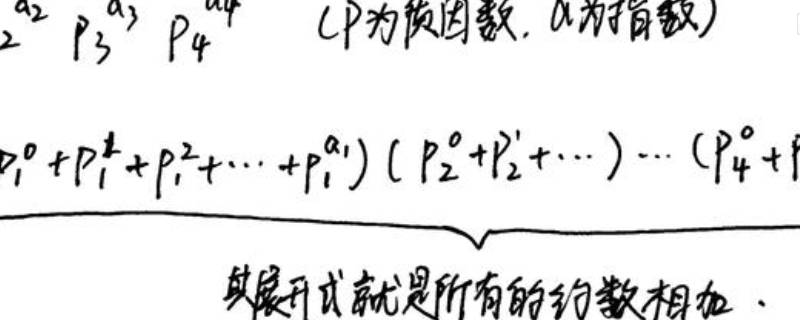 ₂^a₂ P₃^a₃ P₄^a₄ (P为质因数. a为指数)
P₁⁰+P₁¹+P₁²+⋯+P₁^a₁)(P₂⁰+P₂¹+⋯)⋯(P₄⁰+P
其展开式就是所有的约数相加.